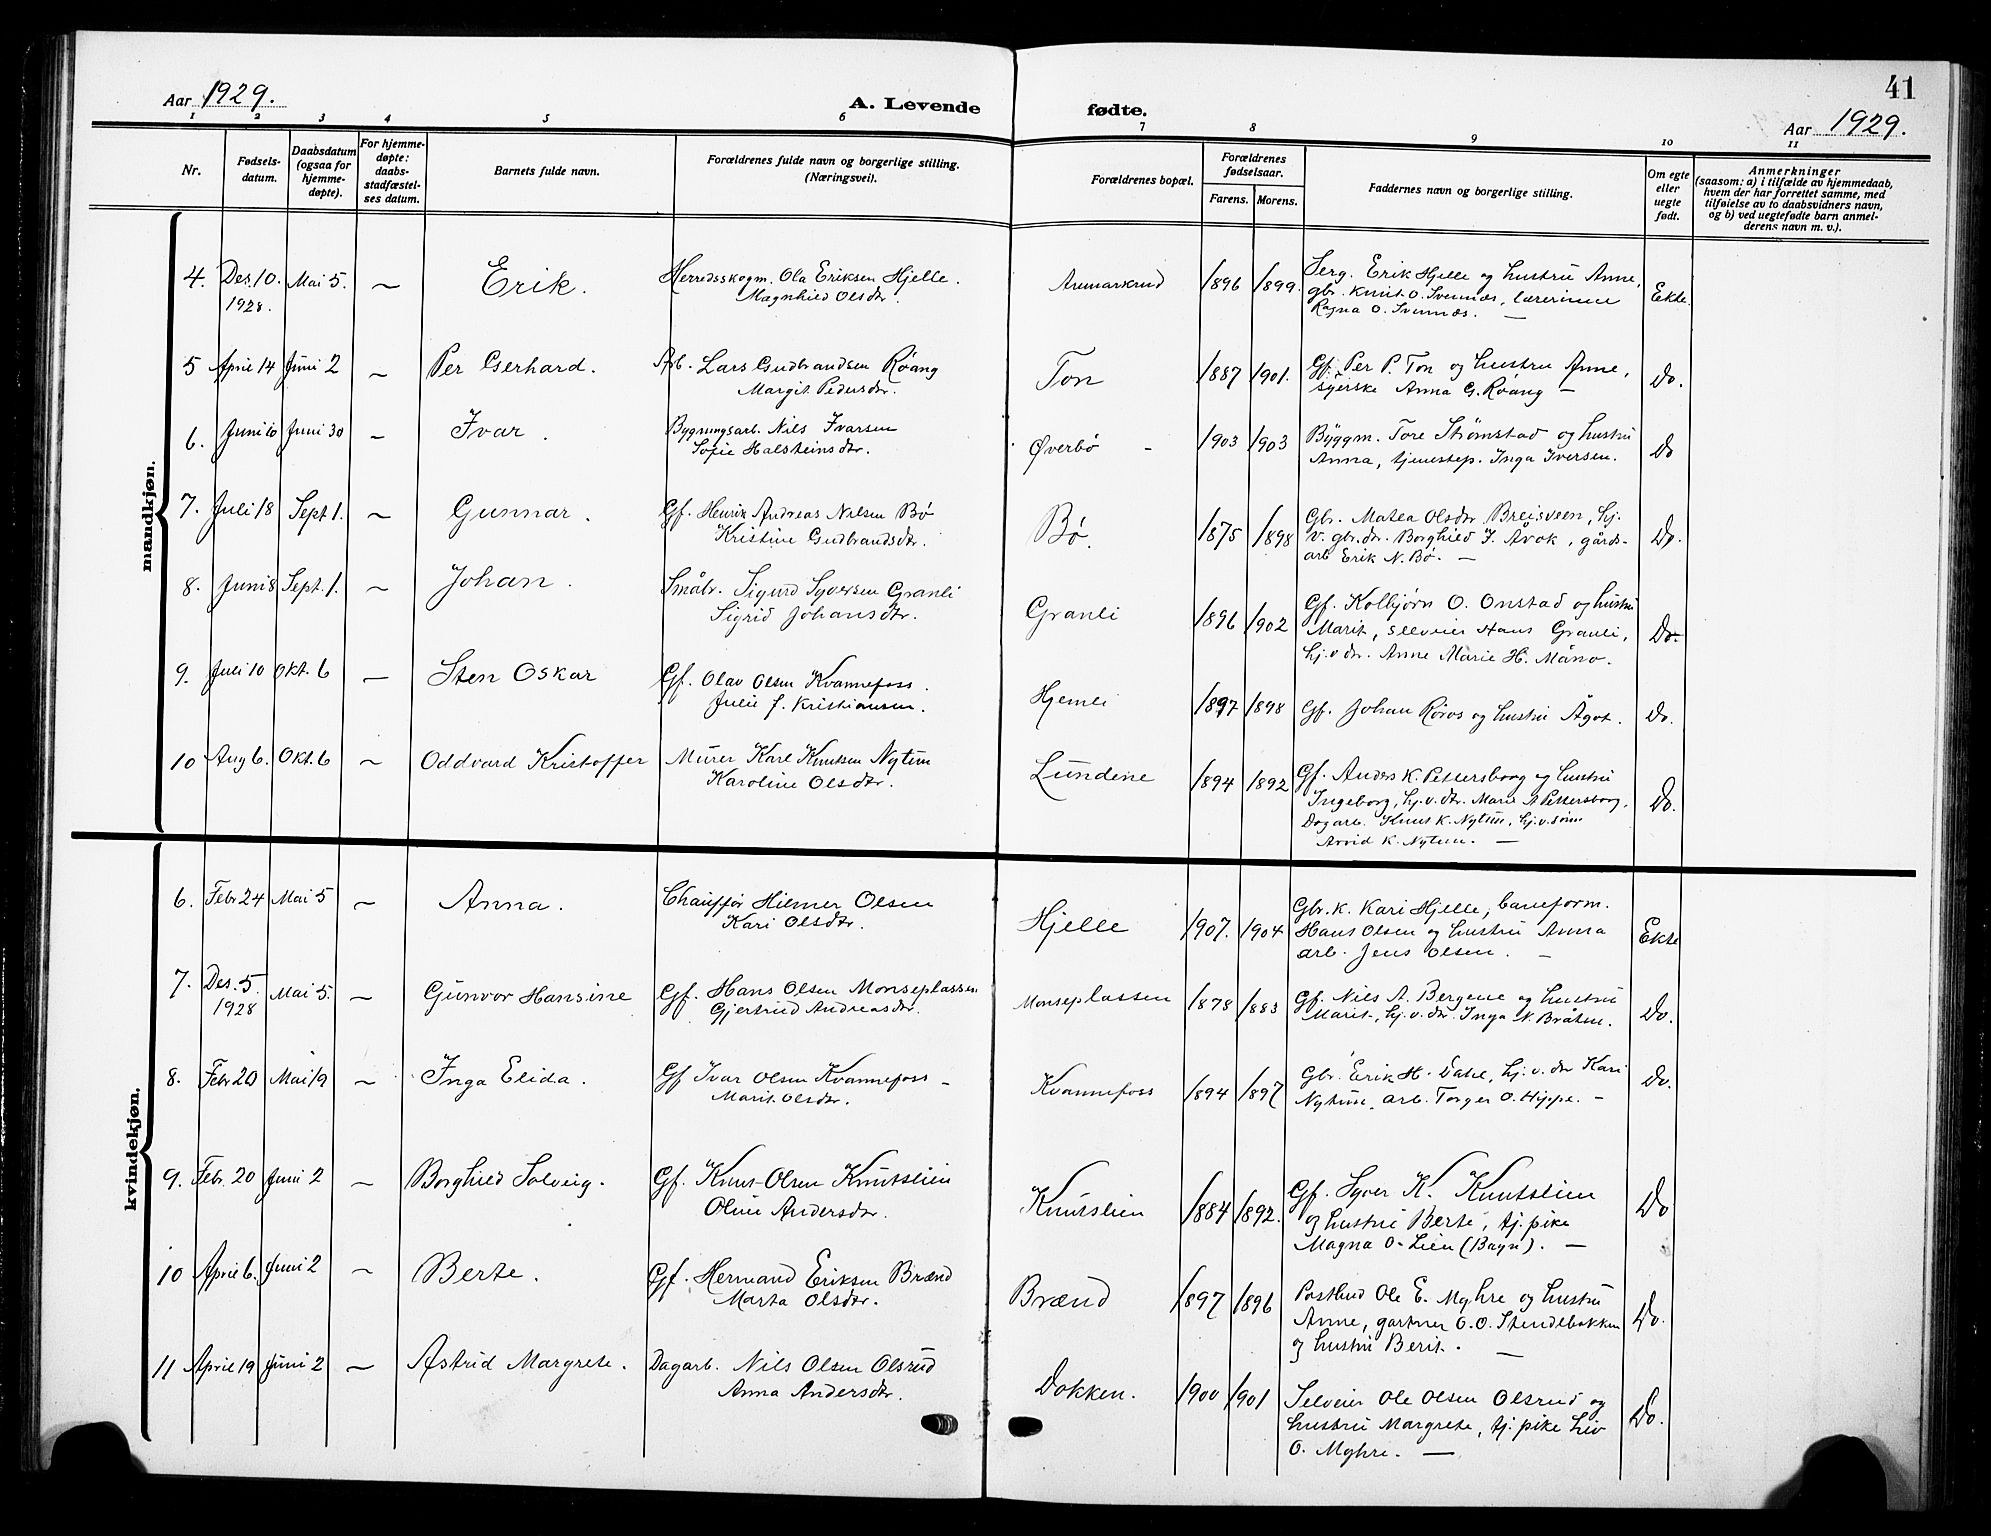 41
Aar 1929.
A. Levende fødte.
Aar 1929.
1 2 3 4 5 6 7 8 9 10 11
Nr.
Fødsels-
datum.
Daabsdatum
(ogsaa for
hjemme-
døpte).
For hjemme-
døpte:
daabs-
stadfæstel-
ses datum.
Barnets fulde navn.
Forældrenes fulde navn og borgerlige stilling.
(Næringsvei).
Forældrenes bopæl.
Forældrenes
fødselsaar.
Farens. Morens.
Faddernes navn og borgerlige stilling.
Om egte
eller
uegte
født.
Anmerkninger
(saasom: a) i tilfælde av hjemmedaab,
hvem der har forrettet samme, med
tilføielse av to daabsvidners navn,
og b) ved uegtefødte barn anmel-
derens navn m. v.).
mandkjøn.
4. Des. 10. Mai 5. – Erik. Herredsskogm. Ola Eriksen Hjelle. 1896 1899. Serg. Erik Hjelle og hustru Anne,
1928. Magnhild Olsdtr. gbr. Knut O. Svennæs, lærerinne Ekte.
Ragna O. Svennæs. –
5 April 14 Juni 2 – Per Gerhard. Arb. Lars Gudbrandsen Røang Ton 1887 1901. Gf. Per P. Ton og hustru Anne, Do.
Margit Pedersdtr. syerske Anna G. Røang –
6. Juni 10 Juni 30 – Ivar. Bygningsarb. Nils Ivarsen Øverbø – 1903 1903 Byggm. Tore Strømstad og hustru Do
Sofie Halsteinsdtr. Anna, tjenestep. Inga Iversen.
7. Juli 18 Sept 1. – Gunnar. Gf. Henrik Andreas Nilsen Bø Bø. 1875 1898 Gbr. Matea Olsdtr Breisveen, hj.
Kristine Gudbrandsdtr. v. gbr. dr. Borghild J. Avok, gårds- Do.
arb Erik N. Bø. –
8. Juni 8 Sept. 1. – Johan. Småbr. Sigurd Syversen Granli Granli 1896 1902 Gf. Kolbjørn O. Onstad og hustru
Sigrid Johansdtr. Marit, selveier Hans Granli, Do.
hj. v dr. Anne Marie H. Måno.
9. Juli 10 Okt. 6 – Sten Oskar Gf. Olav Olsen Kvannefoss. Hjemli 1897 1898 Gf. Johan Røros og hustru Ågot. Do.
Julie f. Kristiansen.
10 Aug 6. Okt. 6 – Oddvard Kristoffer Murer Karl Knutsen Nytun Lundene 1894 1892 Gf. Anders K. Pettersborg og hustru
Karoline Olsdtr. Ingeborg, hj. v. dtr. Marie A Pettersborg, Do.
Dagarb. Knut K. Nytun, hj. v. sønn
Arvid K. Nytun. –
kvindekjøn.
6. Febr 24 Mai 5 – Anna. Chauffør Hilmer Olsen Hjelle 1907. 1904 Gbr. k. Kari Hjelle, baneform.
Kari Olsdtr. Hans Olsen og hustru Anna Ekte
arb. Jens Olsen. –
7. Des. 5. Mai 5. – Gunvor Hansine Gf. Hans Olsen Monseplassen Monseplassen 1878 1883 Gf. Nils A. Bergene og hustru Do.
1928 Gjertrud Andreasdtr. Marit, hj. v. dr. Inga N. Bråten.
8. Febr 20 Mai 19 – Inga Elida. Gf Ivar Olsen Kvannefoss – Kvannefoss 1894 1897 Gbr. Erik H. Dahl, hj. v. dr Kari Do.
Marit Olsdtr. Nytun, arb. Torger O. Hippe. –
9. Febr. 20 Juni 2 – Borghild Solveig. Gf. Knut Olsen Knutslien Knutslien 1884 1892. Gf. Syver K. Knutslien Do
Oline Andersdtr. og hustru Berte, tj. pike
Magna O. Lien (Bagn). –
10 April 6. Juni 2 – Berte. Gf. Hermand Eriksen Brænd Brænd 1897 1896 Postbud Ole E. Myhre og hustru
Marta Olsdtr. Anne, gartner O. O. Stendebakken Do.
og hustru Berit. –
11 April 19 Juni 2 – Astrid Margrete. Dagarb. Nils Olsen Olsrud Dokken. 1900 1901 Selveier Ole Olsen Olsrud og
Anna Andersdtr. hustru Margrete, tj. pike Liv Do.
O. Myhre. –